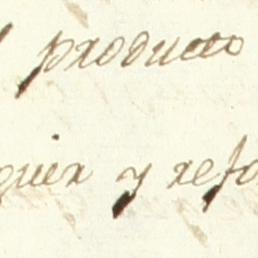 producto
quier y refo